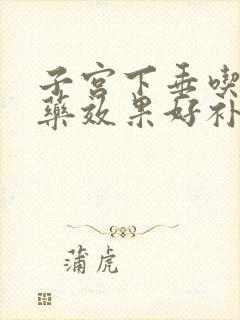 子宫下垂喫
藥效果好补
蒲虎